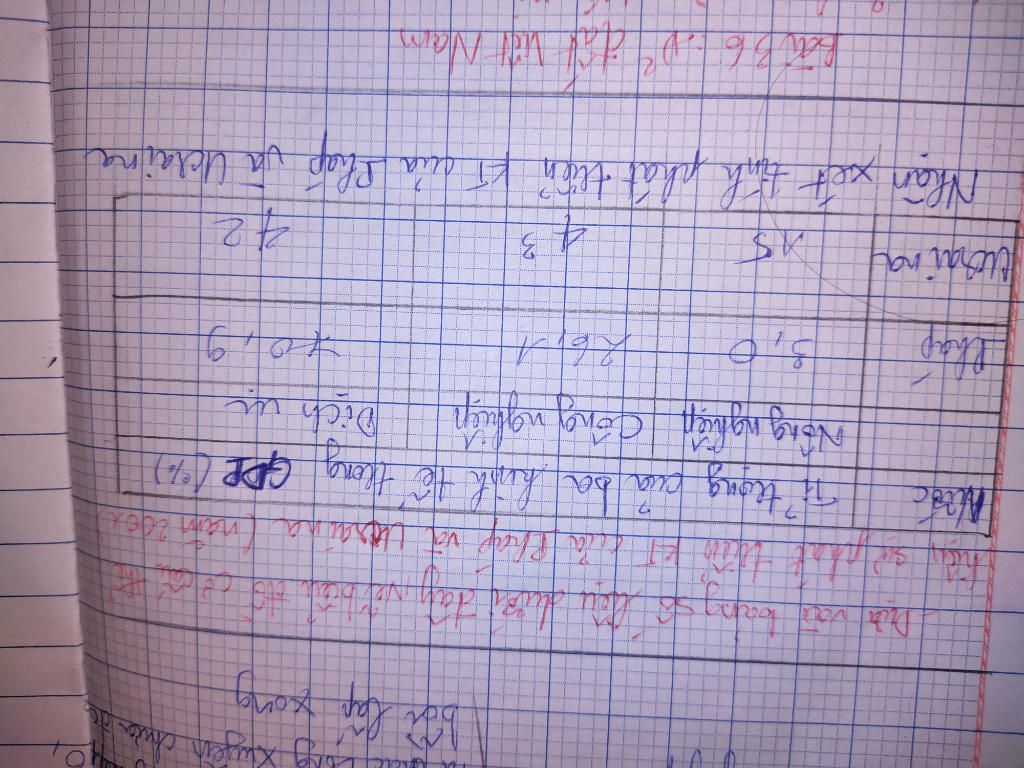 xuyên chưa
bài tập xong
- Dựa vào bảng số liệu dưới đây, vẽ biểu đồ cơ cấu
hiện sự phát triển KT của Pháp và Ucraina (năm
Nước Tỉ trọng của ba kinh tế trong GDP (%)
Nông nghiệp Công nghiệp Dịch vụ
Pháp 3,0 26,1 70,9
Ucraina 15 43 42
Nhận xét tình phát triển KT của Pháp và Ucraina
Bài 36: đất Việt Nam